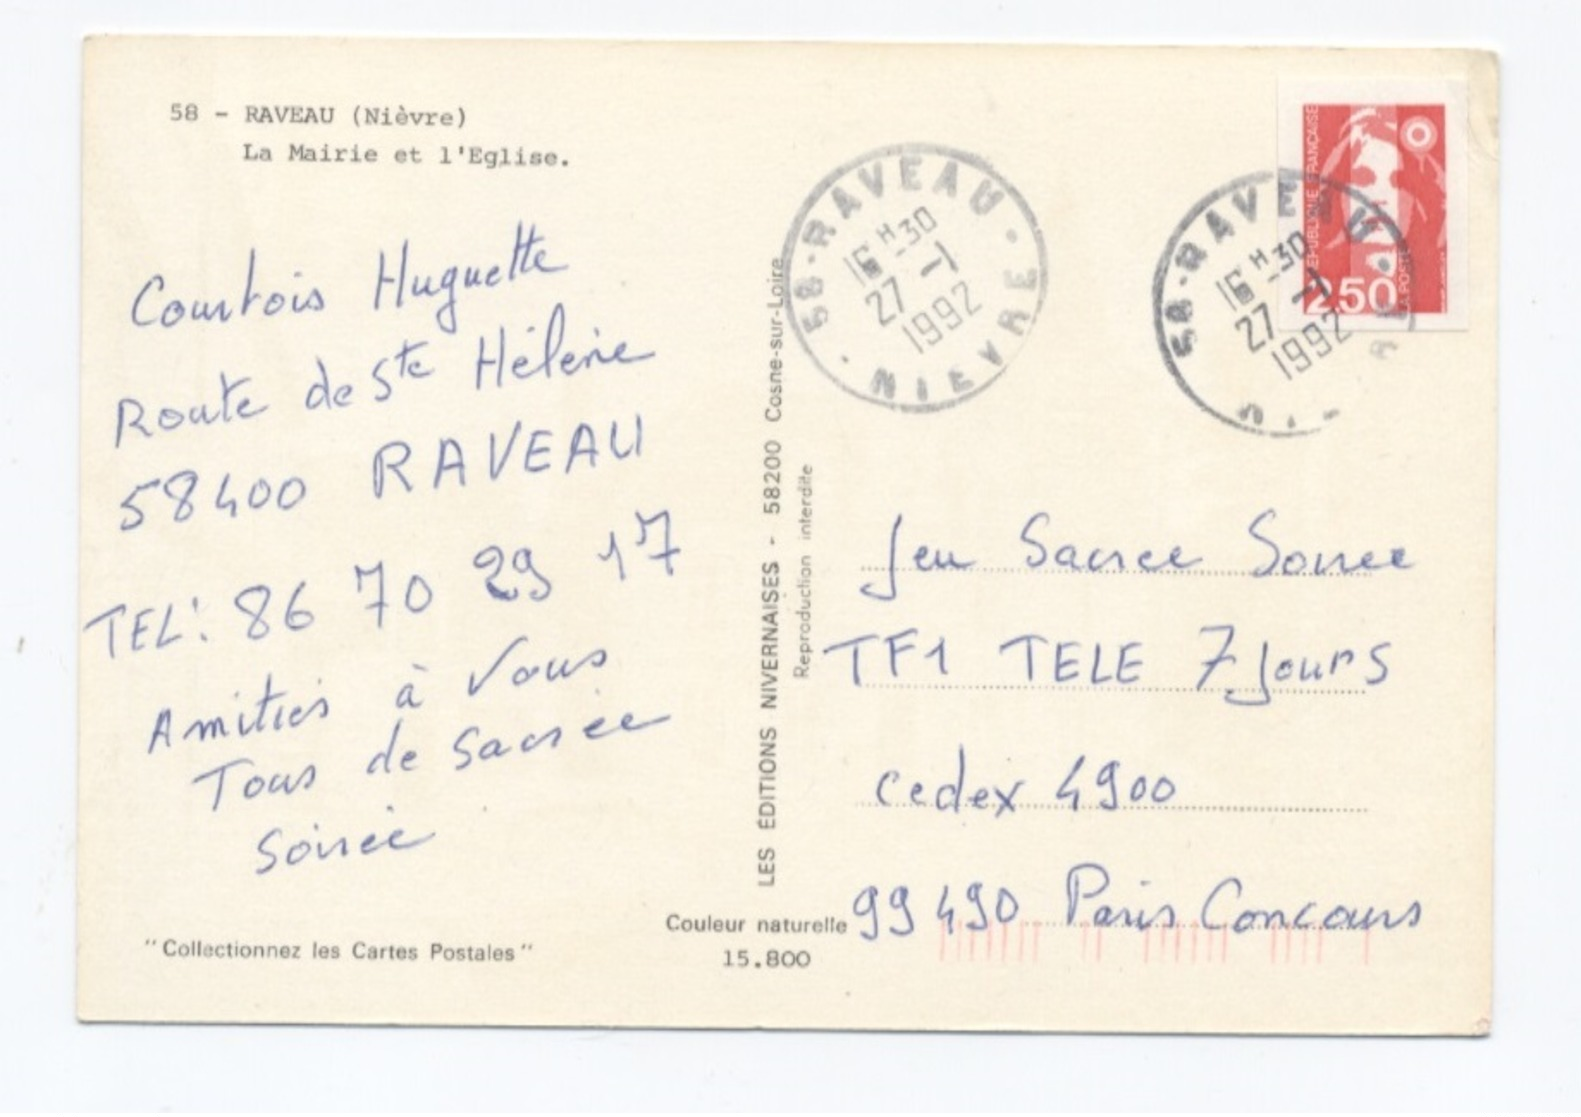 58 - RAVEAU (Nièvre)
La Mairie et l'Eglise.
Courtois Huguette
Route de Ste Hélène
58400 RAVEAU
TEL: 86 70 29 17
Amitiés à Vous
Tous de Sacrée
Soirée
"Collectionnez les Cartes Postales"
LES ÉDITIONS NIVERNAISES - 58200 Cosne-sur-Loire
Reproduction interdite
Couleur naturelle
15.800
58 - RAVEAU
16H30
27 -1
1992
NIEVRE
58 - RAVEAU
16H30
27 -1
1992
REPUBLIQUE FRANÇAISE
2,50
LA POSTE
Jeu Sacree Soiree
TF1 TELE 7 Jours
cedex 4900
99490 Paris Concours